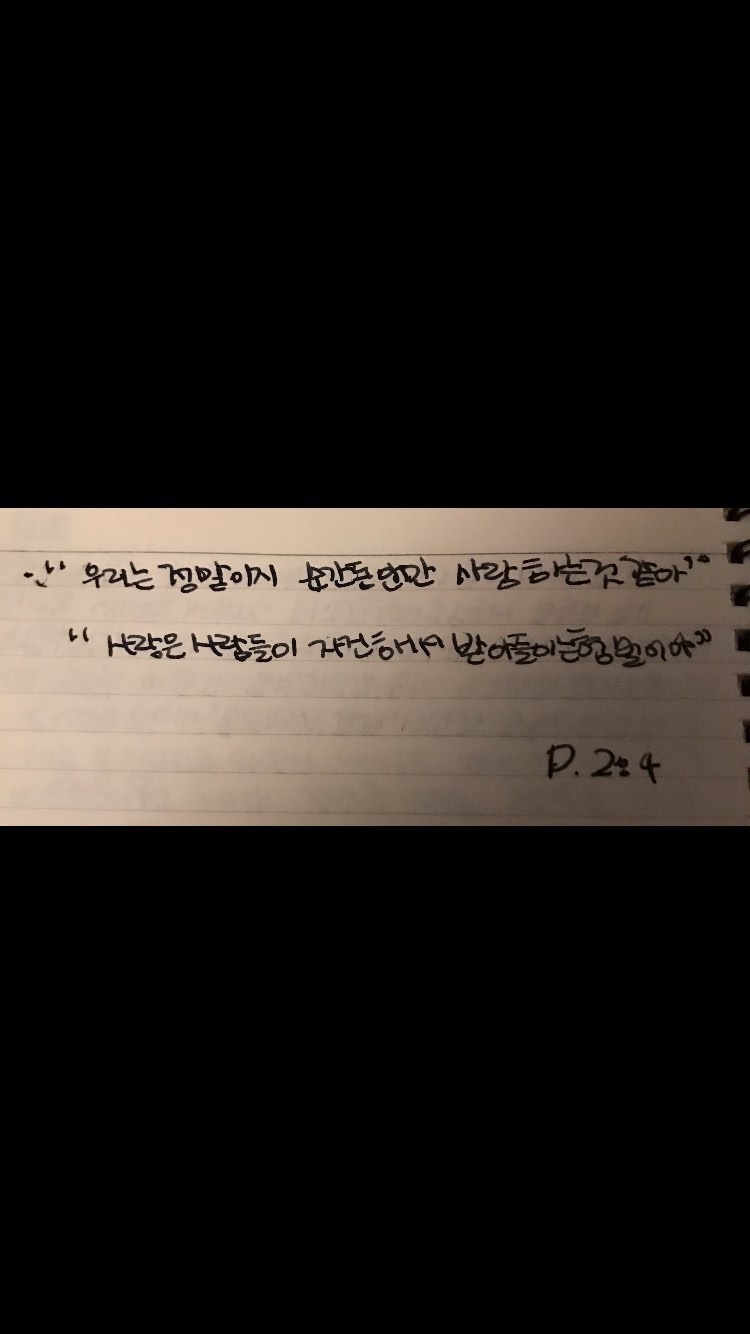 ·“우리는 정말이지 순간동안만 사랑하는것 같아”
“사랑은 사람들이 자건해서 받아들이는형벌이야”
P. 204